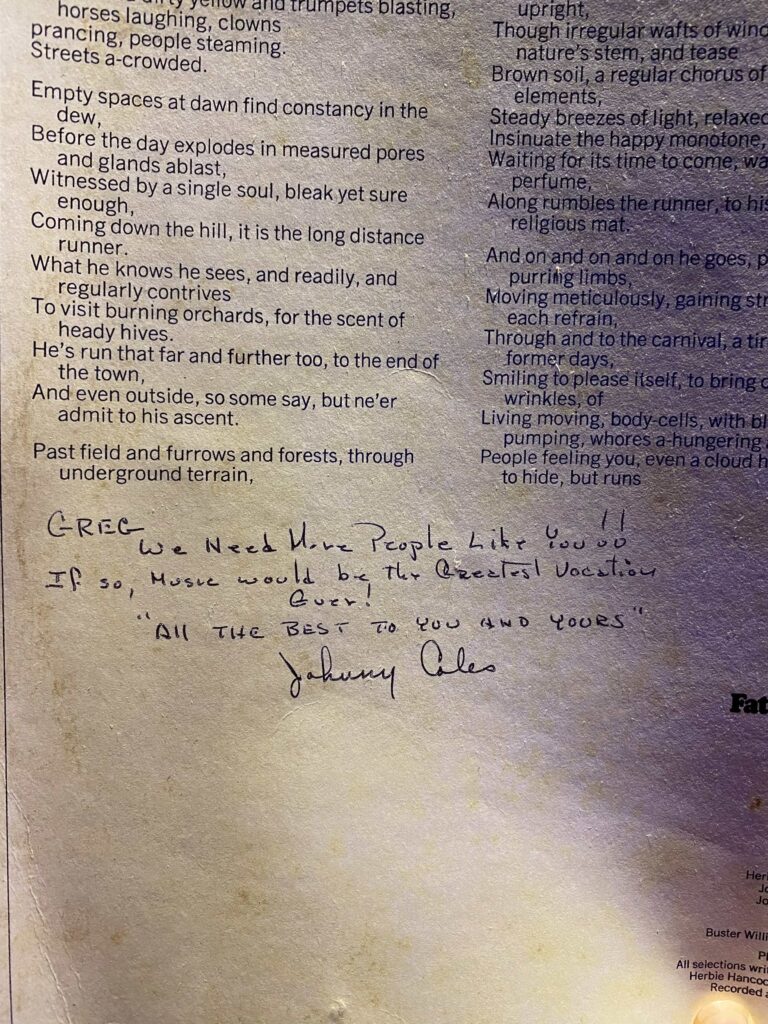 yellow and trumpets blasting,
horses laughing, clowns
prancing, people steaming.
Streets a-crowded.
Empty spaces at dawn find constancy in the
dew,
Before the day explodes in measured pores
and glands ablast,
Witnessed by a single soul, bleak yet sure
enough,
Coming down the hill, it is the long distance
runner.
What he knows he sees, and readily, and
regularly contrives
To visit burning orchards, for the scent of
heady hives.
He's run that far and further too, to the end of
the town,
And even outside, so some say, but ne'er
admit to his ascent.
Past field and furrows and forests, through
underground terrain,
upright,
Though irregular wafts of wind
nature's stem, and tease
Brown soil, a regular chorus of
elements,
Steady breezes of light, relaxed
Insinuate the happy monotone,
Waiting for its time to come,
perfume,
Along rumbles the runner, to his
religious mat.
And on and on and on he goes,
purring limbs,
Moving meticulously, gaining
each refrain,
Through and to the carnival, a
former days,
Smiling to please itself, to bring
wrinkles, of
Living moving, body-cells, with
pumping, whores a-hungering
People feeling you, even a cloud
to hide, but runs
GREG
We Need More People Like You!!
If so, Music would be the Greatest Vocation
Ever!
"All THE BEST TO YOU AND YOURS"
Johnny Coles
Fat
Buster
All selections
Herbie
Recorded